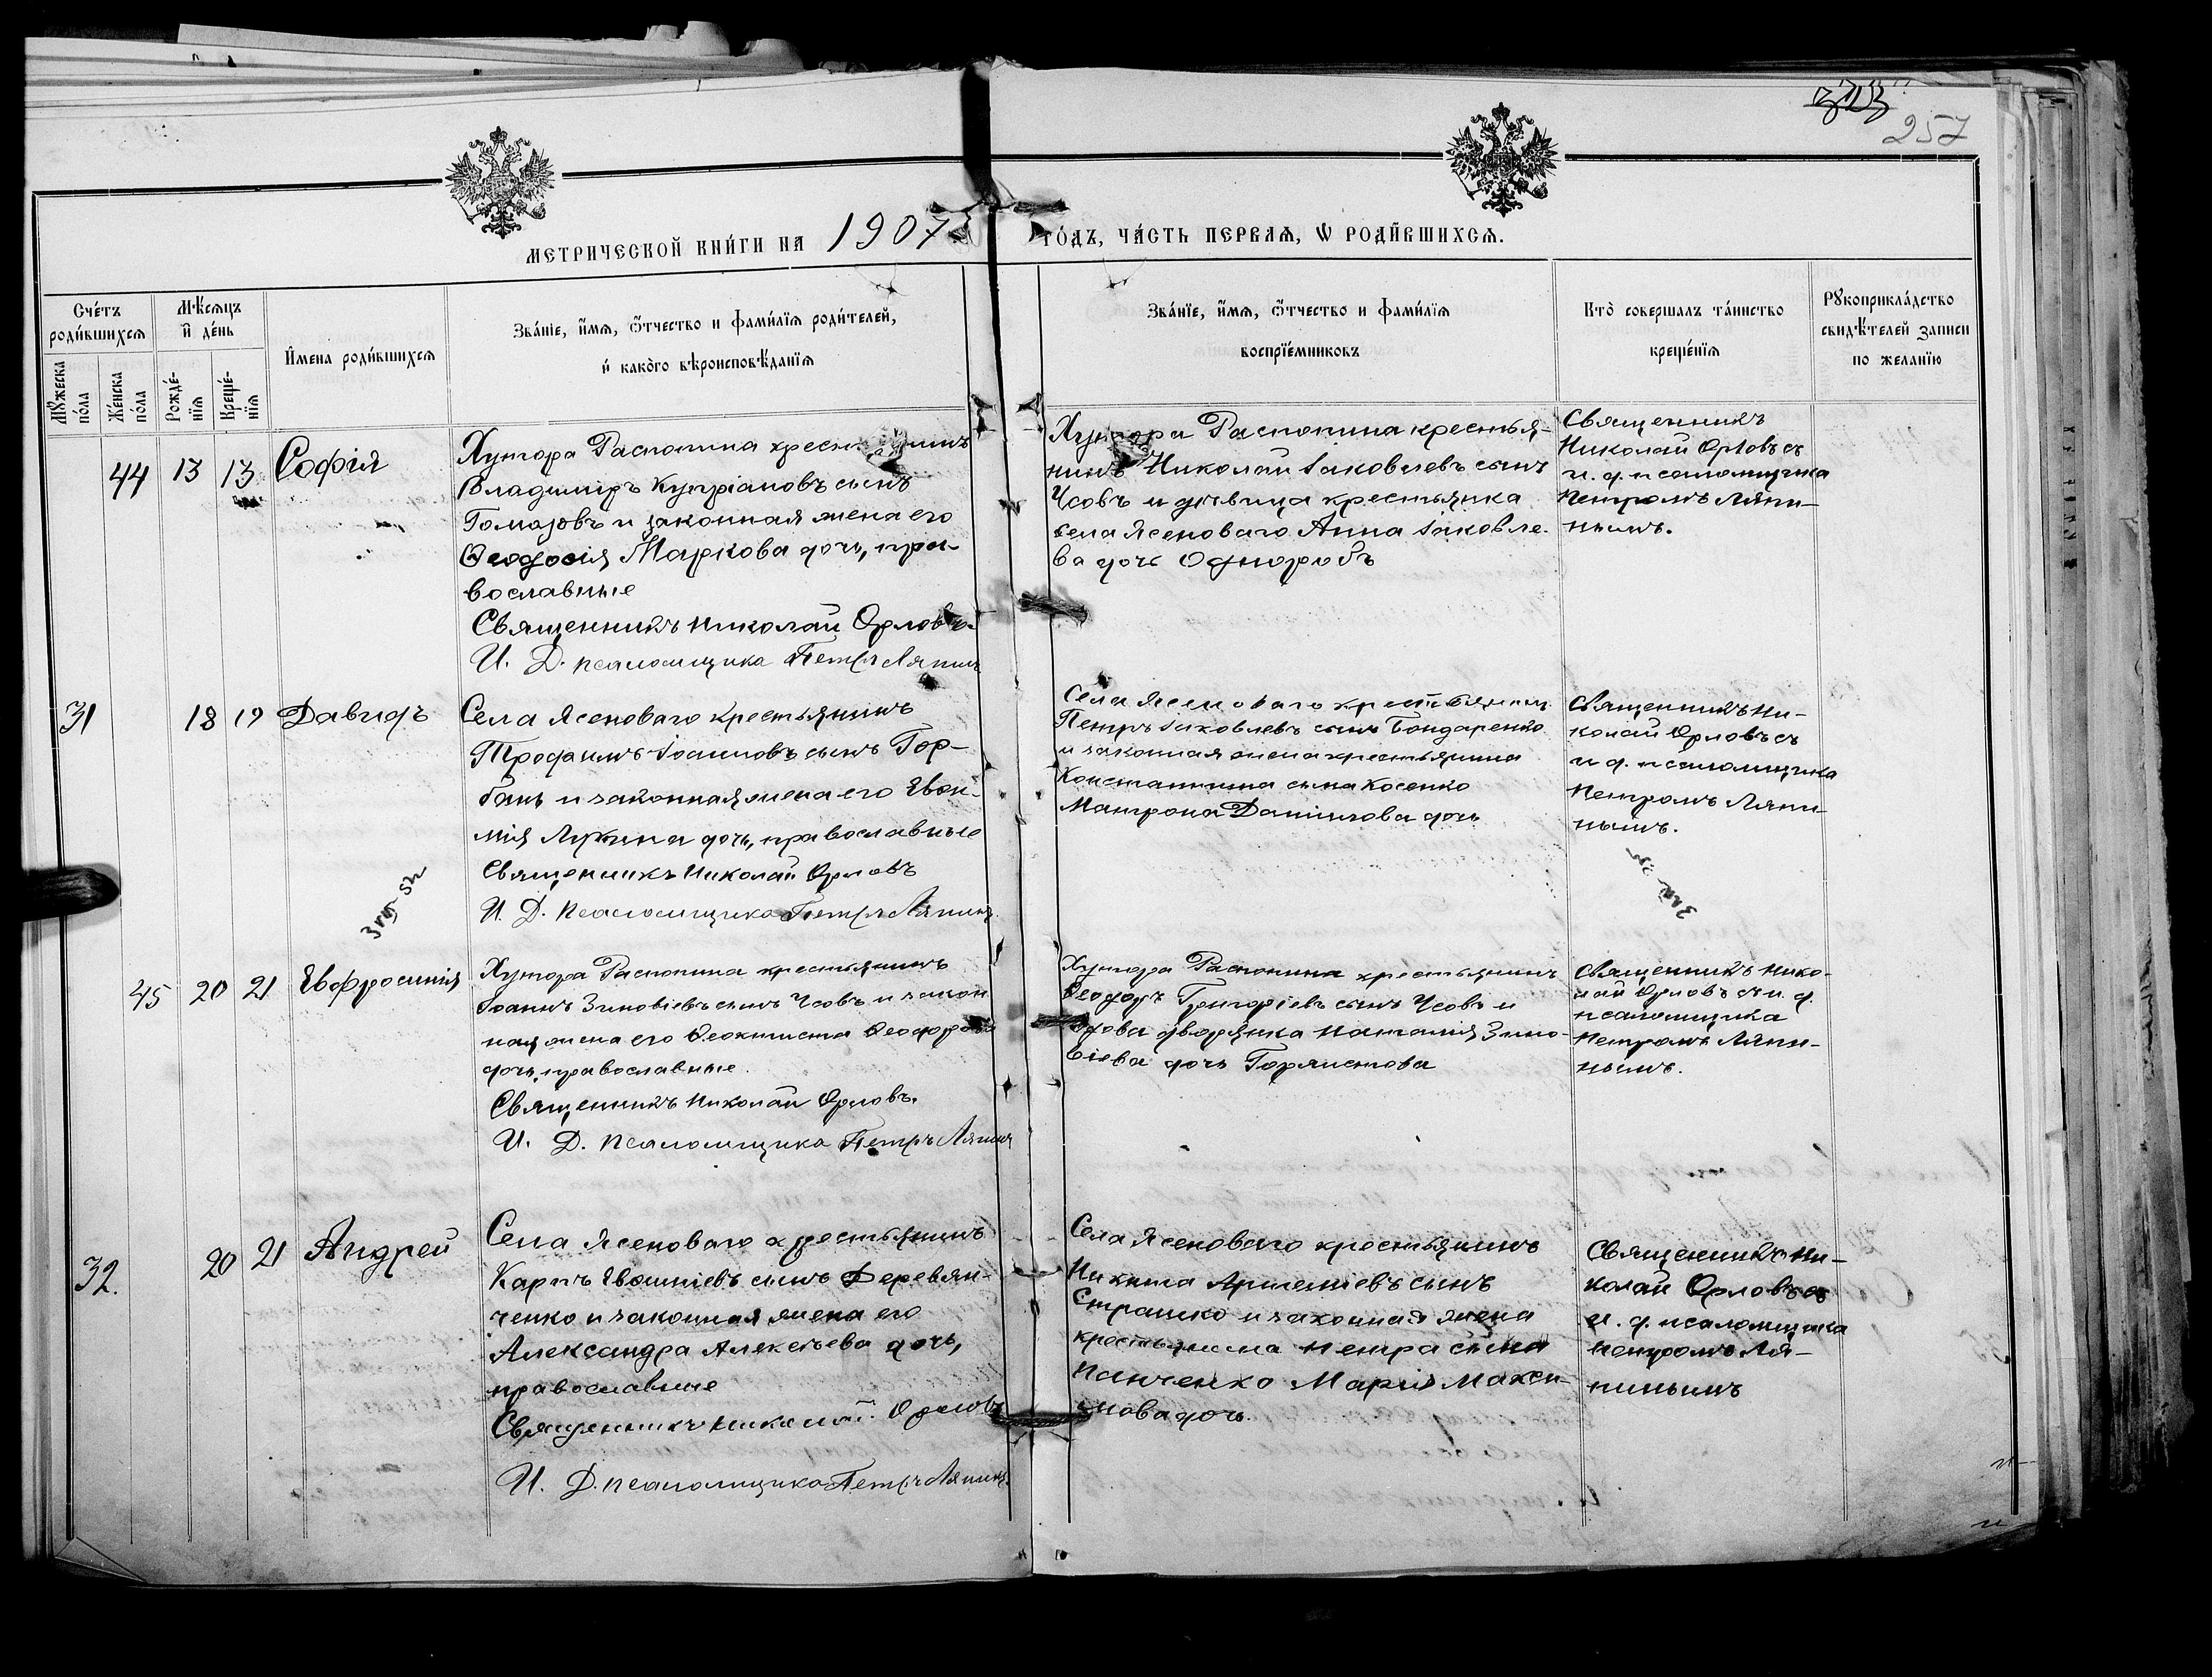 257
МЕТРИЧЕСКОЙ КНИ́ГИ НА 1907 ГО́ДЪ, ЧА́СТЬ ПЕРВАѦ, Ѡ РОДИ́ВШИХСѦ.
Сче́тъ роди́вшихсѧ
Мꙋ́жеска по́ла
Же́нска по́ла
Мѣ́сѧцъ и҆ де́нь
Рожде́-нїѧ
Креще́-нїѧ
И҆мена роди́вшихсѧ
Зва́нїе, и҆́мѧ, ѻ҆́тчество и фами́лїѧ роди́телей,
и҆ како́гѡ вѣроисповѣ́данїѧ
Зва́нїе, и҆́мѧ, ѻ҆́тчество и фами́лїѧ
воспрїе́мниковъ
Кто̀ совершалъ та́инство
креще́нїѧ
Рꙋкоприкла́дство
свидѣ́телей записи
по желанїю
44 13 13 Софія
Хутора Распопина крестьянинъ
Владиміръ Купріановъ сынъ
Гомозовъ и законная жена его
Ѳеодосія Маркова дочь, пра-
вославные
Священникъ Николай Орловъ.
И. Д. псаломщика Петръ Ляпинъ
Хутора Распопина крестья-
нинъ Николай Іаковлевъ сынъ
Усовъ и дѣвица крестьянка
села Ясеноваго Анна Іаковле-
ва дочь Одноробъ
Священникъ
Николай Орловъ съ
и. д. псаломщика
Петромъ Ляпи-
нымъ.
31 18 19 Давидъ
Села Ясеноваго крестьянинъ
Трофимъ Іоанновъ сынъ Гор-
бань и законная жена его Евфи-
мія Лукина дочь, православные
Священникъ Николай Орловъ
И. Д. Псаломщика Петръ Ляпинъ.
Села Ясеноваго крестьянинъ
Петръ Іаковлевъ сынъ Бондаренко
и законная жена крестьянина
Константина сына Косенко
Матрона Даніилова дочь
Священникъ Ни-
колай Орловъ съ
и д. псаломщика
Петромъ Ляпи-
нымъ.
45 20 21 Евфросинія
Хутора Распопина крестьянинъ
Іоаннъ Зиновіевъ сынъ Усовъ и закон
ная жена его Ѳеоктиста Ѳеодорова
дочь, православные.
Священникъ Николай Орловъ.
И. Д. Псаломщика Петръ Ляпинъ
Хутора Распопина крестьянинъ
Ѳеодоръ Григоріевъ сынъ Усовъ и
вдова дворянка Наталія Зино-
віева дочь
Священникъ Нико-
лай Орловъ съ и. д.
псаломщика
Петромъ Ляпи-
нымъ.
32. 20 21 Андрей
Села Ясеноваго крестьянинъ
Карпъ сынъ Деревян-
ченко и законная жена его
Александра Алексѣева дочь,
православные
Священникъ Николай Орловъ
И. Д. псаломщика Петръ Ляпинъ.
Села Ясеноваго крестьянинъ
Никита сынъ
Страшко и законная жена
крестьянина Петра сына
Панченко Марія Макси-
мова дочь.
Священникъ Ни-
колай Орловъ съ
и. д. псаломщика
Петромъ Ля-
пинымъ